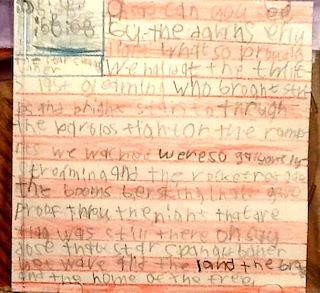 the star span
baner
O say can you see
by the donns erly
light what so proudly
we hailot the twilit
last gleaming who broght strt
ps and bright stars through
the parlos fight Or the ramp
rtes we wached were so galantly
streaming and the rocket red glare
the booms bersting in air gave
proof thru the night that are
flag was still there oh say
dose that star spangu baner
yet wave and the land the brave
and the home of the free